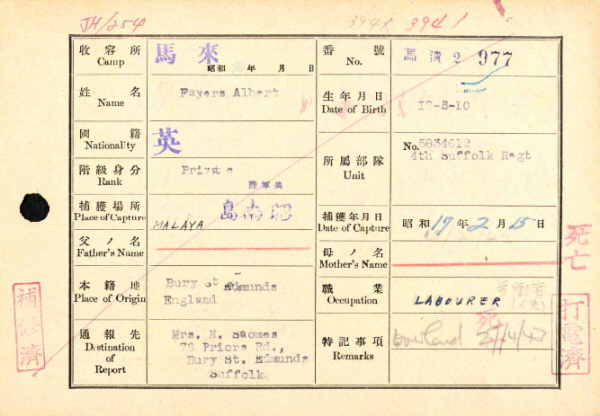 JH/254
394x 3941
收容所 Camp
馬來
昭和 年 月 日
番號 No.
馬 2 977
姓名 Name
Fayers Albert
生年月日 Date of Birth
12-8-10
國籍 Nationality
英
所屬部隊 Unit
No. 5834612
4th Suffolk Regt
階級身分 Rank
Private
陸軍
捕獲場所 Place of Capture
MALAYA
島南昭
捕獲年月日 Date of Capture
昭和 17年 2月 15日
父ノ名 Father's Name
母ノ名 Mother's Name
本籍地 Place of Origin
Bury St Edmunds
England
職業 Occupation
LABOURER
通報先 Destination of Report
Mrs. N.
76 Priors Rd.,
Bury St. Edmunds
Suffolk.
特記事項 Remarks
死亡
打電済
補修済